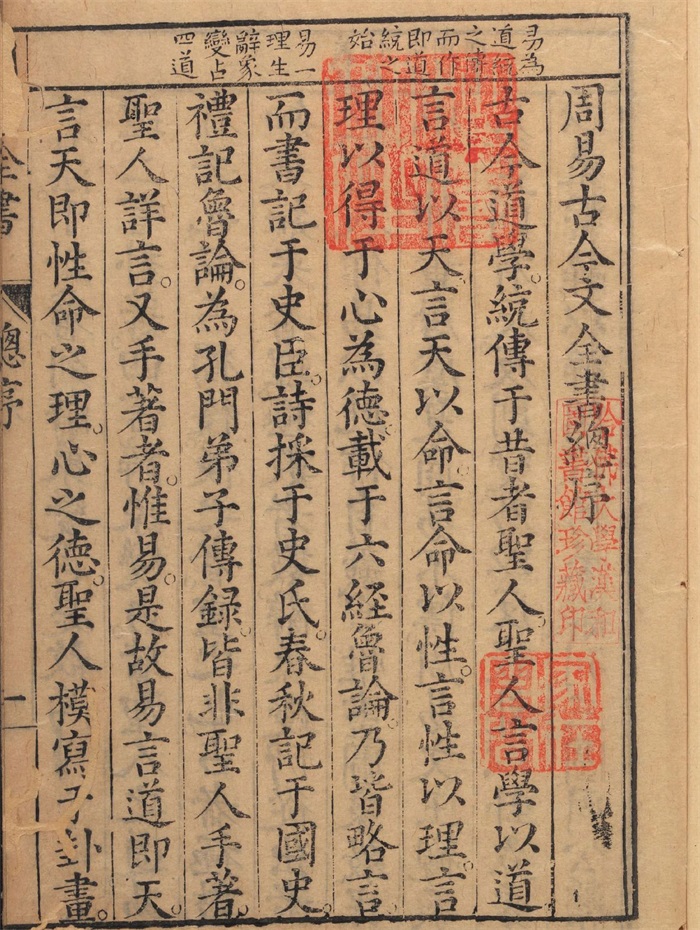 易為
道統
而作
即道
統之
始
易一
理生
辭象
變占
四道
周易古今文全書緫序
古今道學。統傳于昔者聖人。聖人言學以道
言道以天。言天以命。言命以性。言性以理。言
理以得于心為德。載于六經魯論。乃皆略言
而書記于史臣。詩採于史氏。春秋記于國史。
禮記魯論。為孔門弟子傳録。皆非聖人手著。
聖人詳言。又手著者。惟易。是故易言道即天。
言天即性命之理。心之德。聖人模寫于卦畫。
全書
總序
一
哈佛大學漢和
圖書館珍藏印
1